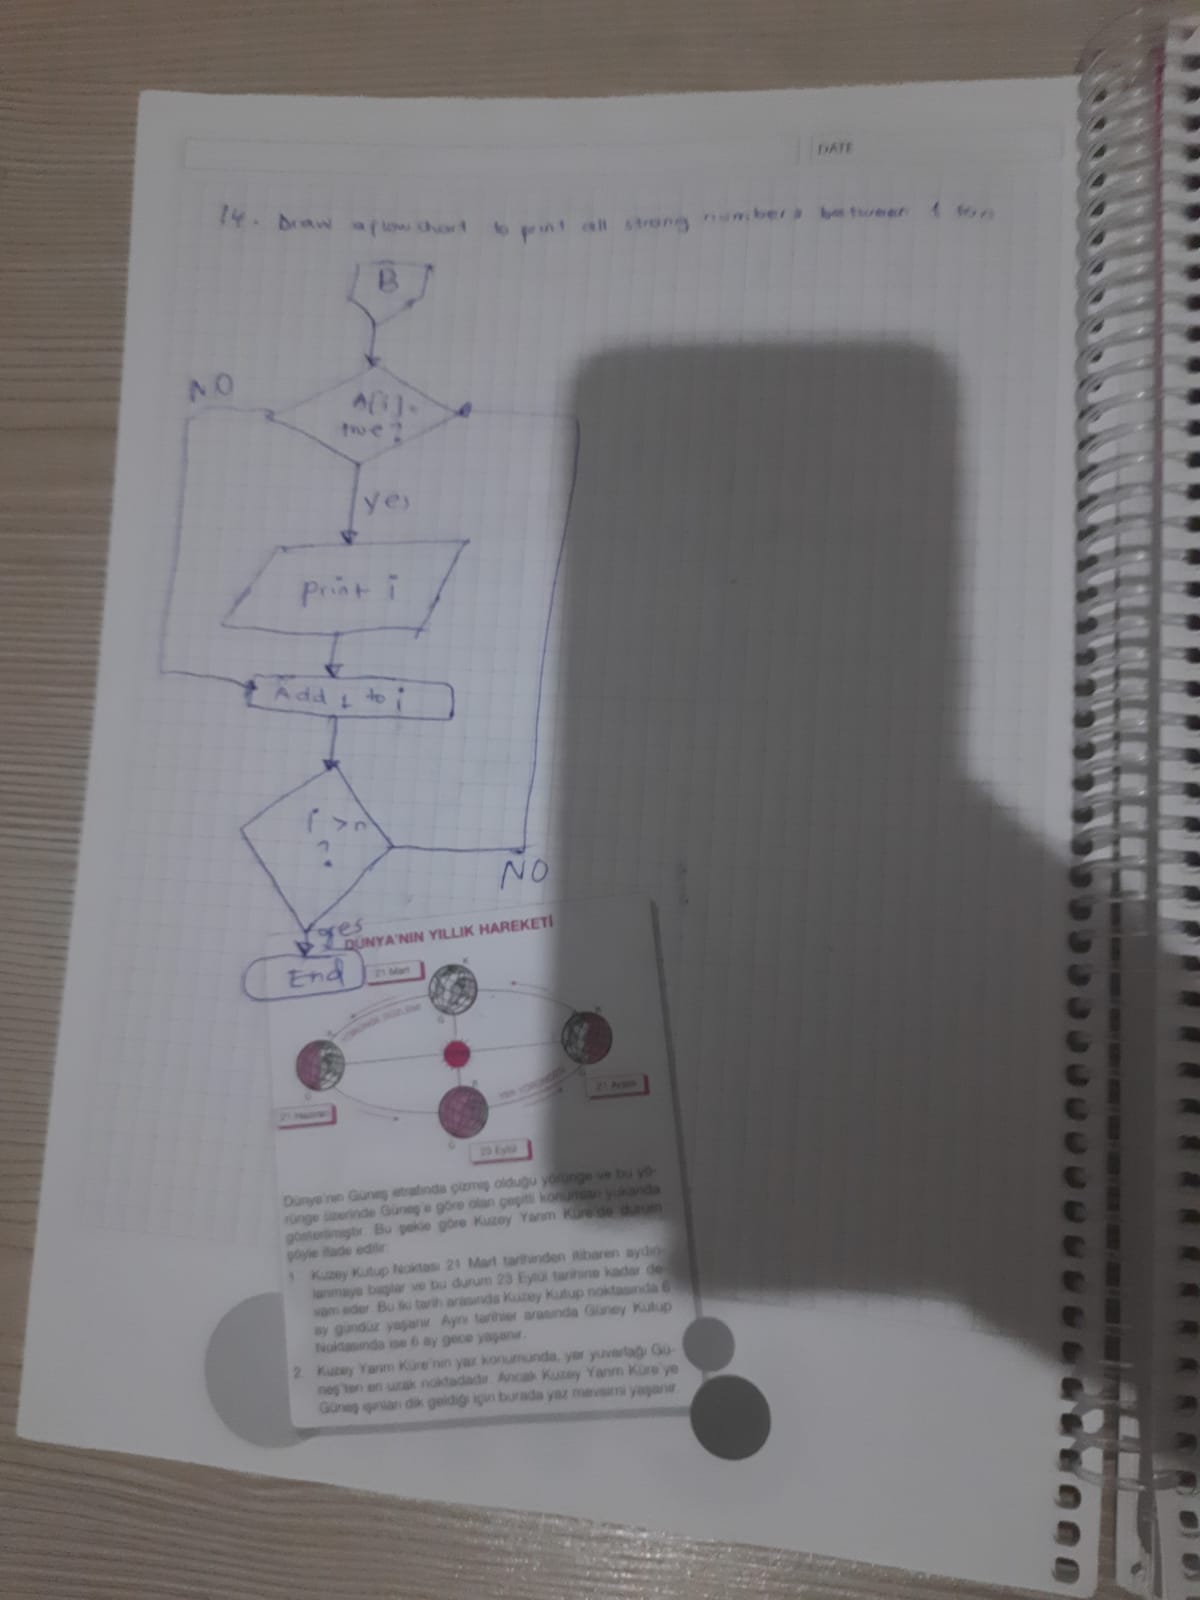 DATE
14. Draw a flowchart to print all strong numbers between 1 to n
B
NO
A[i] =
true?
yes
print i
Add 1 to i
i > n
?
NO
yes
End
DÜNYA'NIN YILLIK HAREKETİ
21 Mart
K
G
21 Aralık
21 Haziran
23 Eylül
Dünya'nın Güneş etrafında çizmiş olduğu yörünge ve bu yö-
rünge üzerinde Güneş'e göre olan çeşitli konumları yukarıda
gösterilmiştir. Bu şekle göre Kuzey Yarım Küre'de durum
şöyle ifade edilir:
1. Kuzey Kutup Noktası 21 Mart tarihinden itibaren aydın-
lanmaya başlar ve bu durum 23 Eylül tarihine kadar de-
vam eder. Bu iki tarih arasında Kuzey Kutup noktasında 6
ay gündüz yaşanır. Aynı tarihler arasında Güney Kutup
Noktasında ise 6 ay gece yaşanır.
2. Kuzey Yarım Küre'nin yaz konumunda, yer yuvarlağı Gü-
neş'ten en uzak noktadadır. Ancak Kuzey Yarım Küre'ye
Güneş ışınları dik geldiği için burada yaz mevsimi yaşanır.